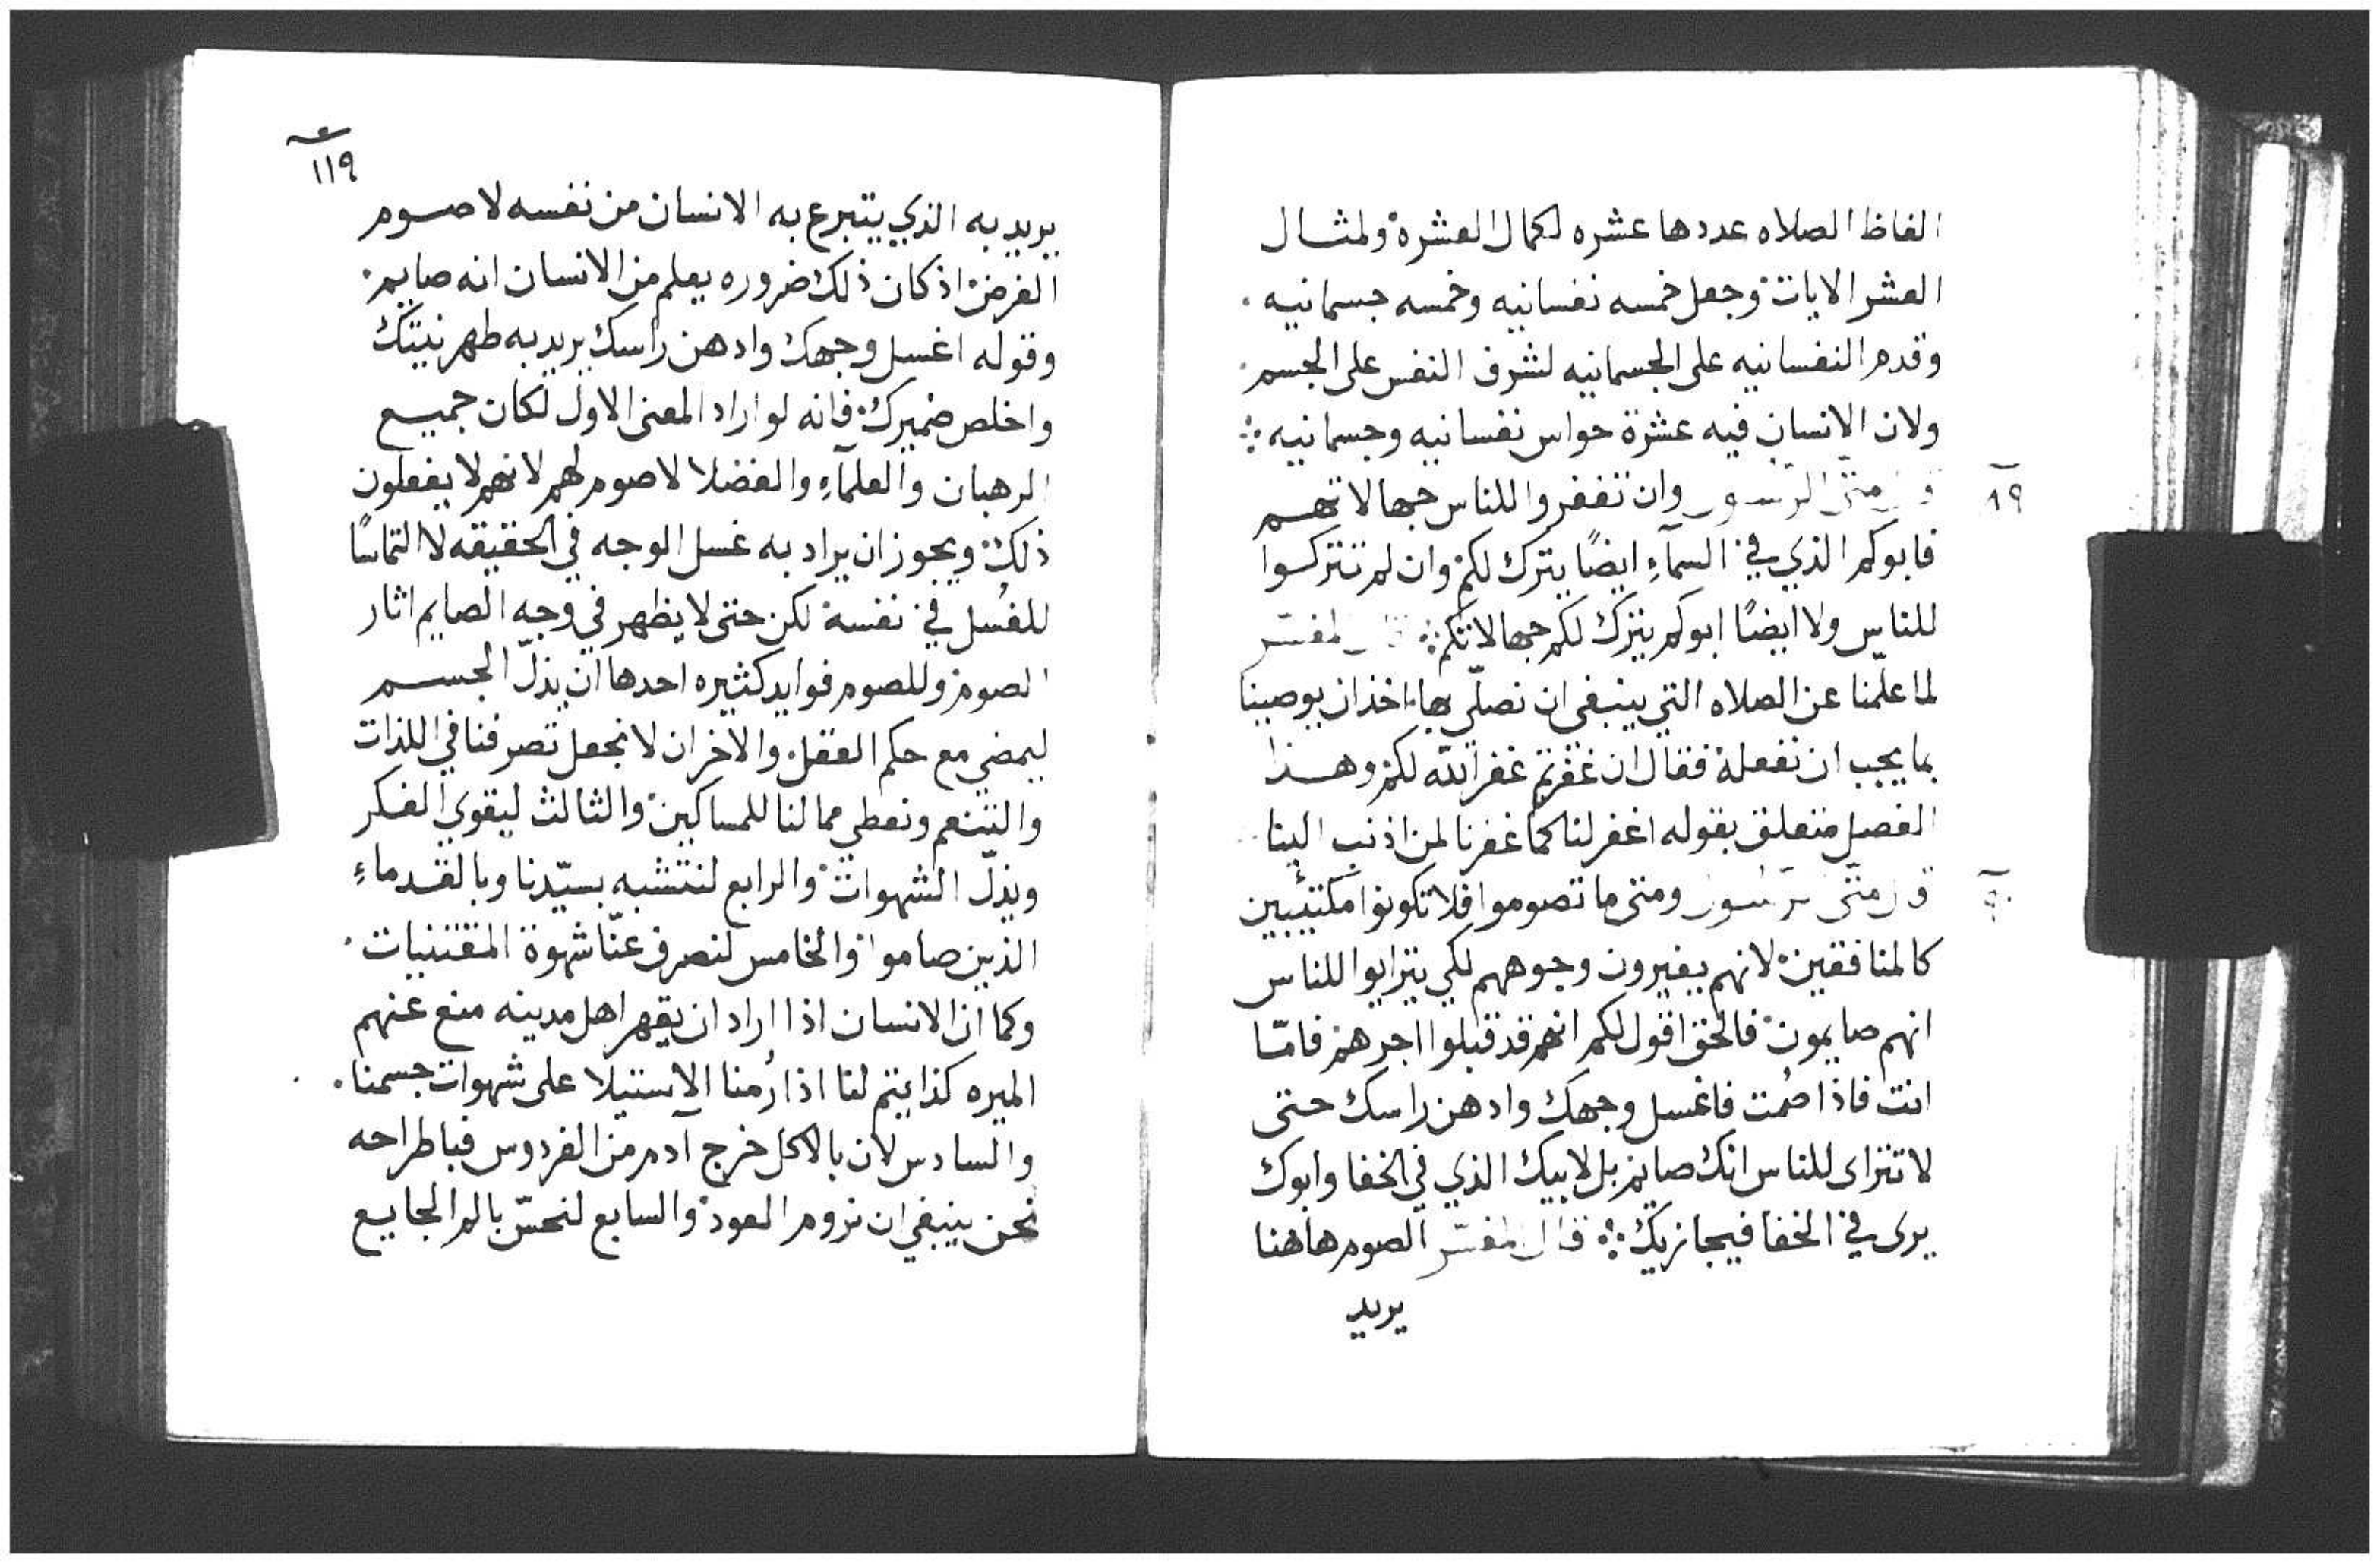 الفاظ الصلاه عددها عشره لكمال العشرة ولمثال
العشر الايات وجعل خمسه نفسانيه وخمسه جسمانيه .
وقدم النفسانيه على الجسمانيه لشرف النفس على الجسم .
ولان الانسان فيه عشرة حواس نفسانيه وجسمانيه ܀
٨٩
قال متى الرسول وان تغفروا للناس جهالاتهم
فابوكم الذي في السمآءِ ايضًا يترك لكم وان لم تتركوا
للناس ولا ايضًا ابوكم يترك لكم جهالاتكم ܀ قال المفسّر
لما علّمنا عن الصلاه التي ينبغي ان نصلّي بها اخذ ان يوصينا
بما يجب ان نفعله فقال ان غفرتم غفر الله لكم وهذا
الفصل متعلق بقوله اغفر لنا كما غفرنا لمن اذنب الينا
٩٠
قال متى الرسول ومتى ما تصوموا فلا تكونوا مكتئبين
كالمنافقين لانهم يغيرون وجوههم لكي يترايوا للناس
انهم صايمون فالحق اقول لكم انهم قد قبلوا اجرهم فامّا
انت فاذا صُمت فاغسل وجهك وادهن راسك حتى
لا تتراى للناس انك صايم بل لابيك الذي في الخفا وابوك
يرى في الخفا فيجازيك ܀ قال المفسّر الصوم هاهنا
يريد
١١٩
يريد به الذي يتبرع به الانسان من نفسه لا صوم
الفرض اذ كان ذلك ضروره يعلم من الانسان انه صايم
وقوله اغسل وجهك وادهن راسك يريد به طهر نيتك
واخلص ضميرك فانه لو اراد المعنى الاول لكان جميع
الرهبان والعلمآءِ والفضلا لا صوم لهم لانهم لا يفعلون
ذلك ويجوز ان يراد به غسل الوجه في الحقيقه لا التماسًا
للغُسل في نفسه لكن حتى لا يظهر في وجه الصايم اثار
الصوم وللصوم فوايد كثيره احدها ان يذلّ الجسم
ليمضي مع حكم العقل والاخر ان لا نجعل تصرفنا في اللذات
والتنعم ونعطي مما لنا للمساكين والثالث ليقوي الفكر
ويذلّ الشهوات والرابع لنتشبه بسيّدنا وبالقدماءِ
الذين صاموا والخامس لنصرف عنّا شهوة المقتنيات .
وكما ان الانسان اذا اراد ان يقهر اهل مدينه منع عنهم
الميره كذا يتم لنا اذا رُمنا الاستيلا على شهوات جسمنا .
والسادس لان بالاكل خرج آدم من الفردوس فباطراحه
نحن ينبغي ان نروم العود والسابع لنحسّ بالم الجايع